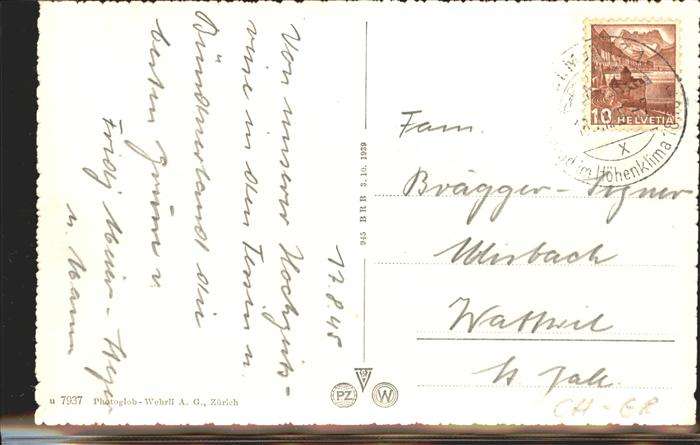 17.8.45
Von unserer Hochzeits-
reise in den Tessin u.
Bündnerland die
besten Grüsse v.
Fridy Meier-
u. Mann
945 BRB 3.10.1939
10 HELVETIA
im Höhenklima
X
Fam.
Brägger-
Ulisbach
Wattwil
St. Gall.
u 7937 Photoglob-Wehrli A. G., Zürich
PZ
W
CH-GR